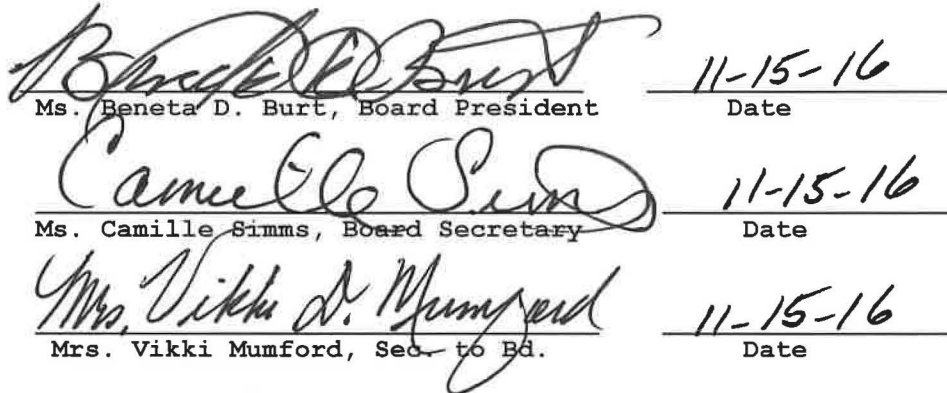 Beneta D Burt 11-15-16
Ms. Beneta D. Burt, Board President Date
Camille Simms 11-15-16
Ms. Camille Simms, Board Secretary Date
Mrs. Vikki D. Mumford 11-15-16
Mrs. Vikki Mumford, Sec. to Bd. Date